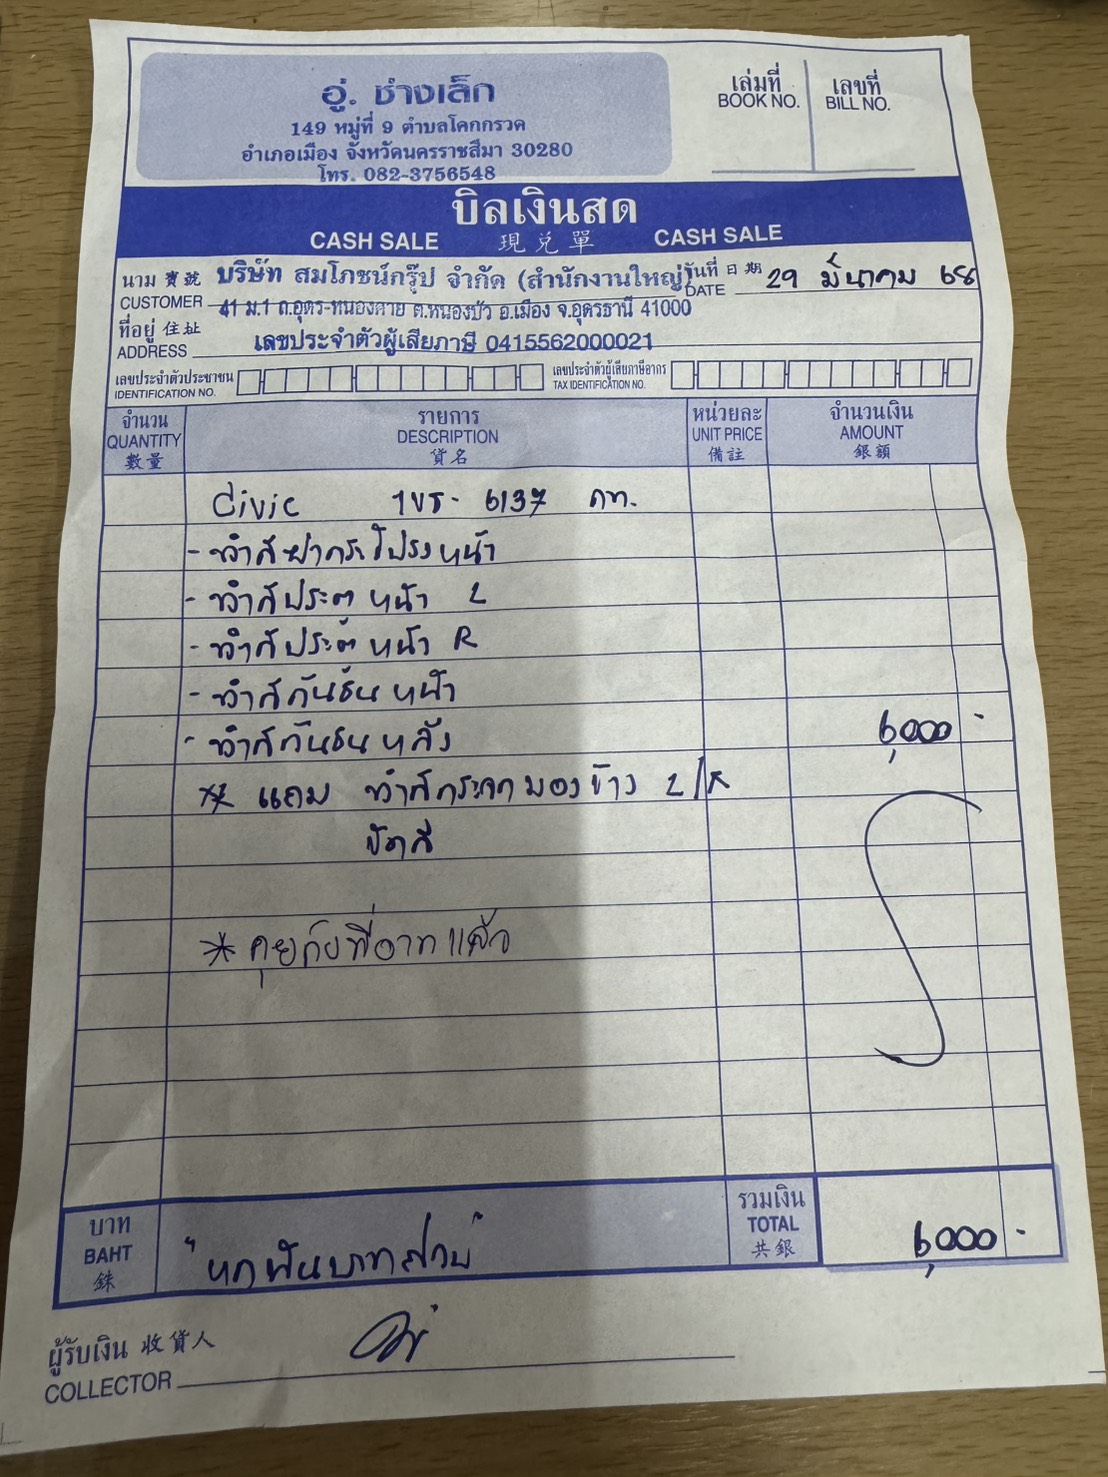 อู่. ช่างเล็ก
149 หมู่ที่ 9 ตำบลโคกกรวด
อำเภอเมือง จังหวัดนครราชสีมา 30280
โทร. 082-3756548
เล่มที่ เลขที่
BOOK NO. BILL NO.
บิลเงินสด
CASH SALE 現兌單 CASH SALE
นาม 寶號 บริษัท สมโภชน์กรุ๊ป จำกัด (สำนักงานใหญ่) วันที่ 日期 29 มีนาคม 68
CUSTOMER 41 ม.1 ถ.อุดร-หนองคาย ต.หนองบัว อ.เมือง จ.อุดรธานี 41000 DATE
ที่อยู่ 住址
ADDRESS เลขประจำตัวผู้เสียภาษี 0415562000021
เลขประจำตัวประชาชน เลขประจำตัวผู้เสียภาษีอากร
IDENTIFICATION NO. TAX IDENTIFICATION NO.
จำนวน รายการ หน่วยละ จำนวนเงิน
QUANTITY DESCRIPTION UNIT PRICE AMOUNT
數量 貨名 備註 銀額
Civic 1ขร-6137 กท.
- ทำสีฝากระโปรงหน้า
- ทำสีประตูหน้า L
- ทำสีประตูหน้า R
- ทำสีกันชนหน้า
- ทำสีกันชนหลัง 6,000 -
** แถม ทำสีกระจกมองข้าง L/R
ขัดสี
* คุยกับพี่อาทแล้ว
บาท รวมเงิน
BAHT "หกพันบาทถ้วน" TOTAL 6,000 -
銖 共銀
ผู้รับเงิน 收貨人
COLLECTOR